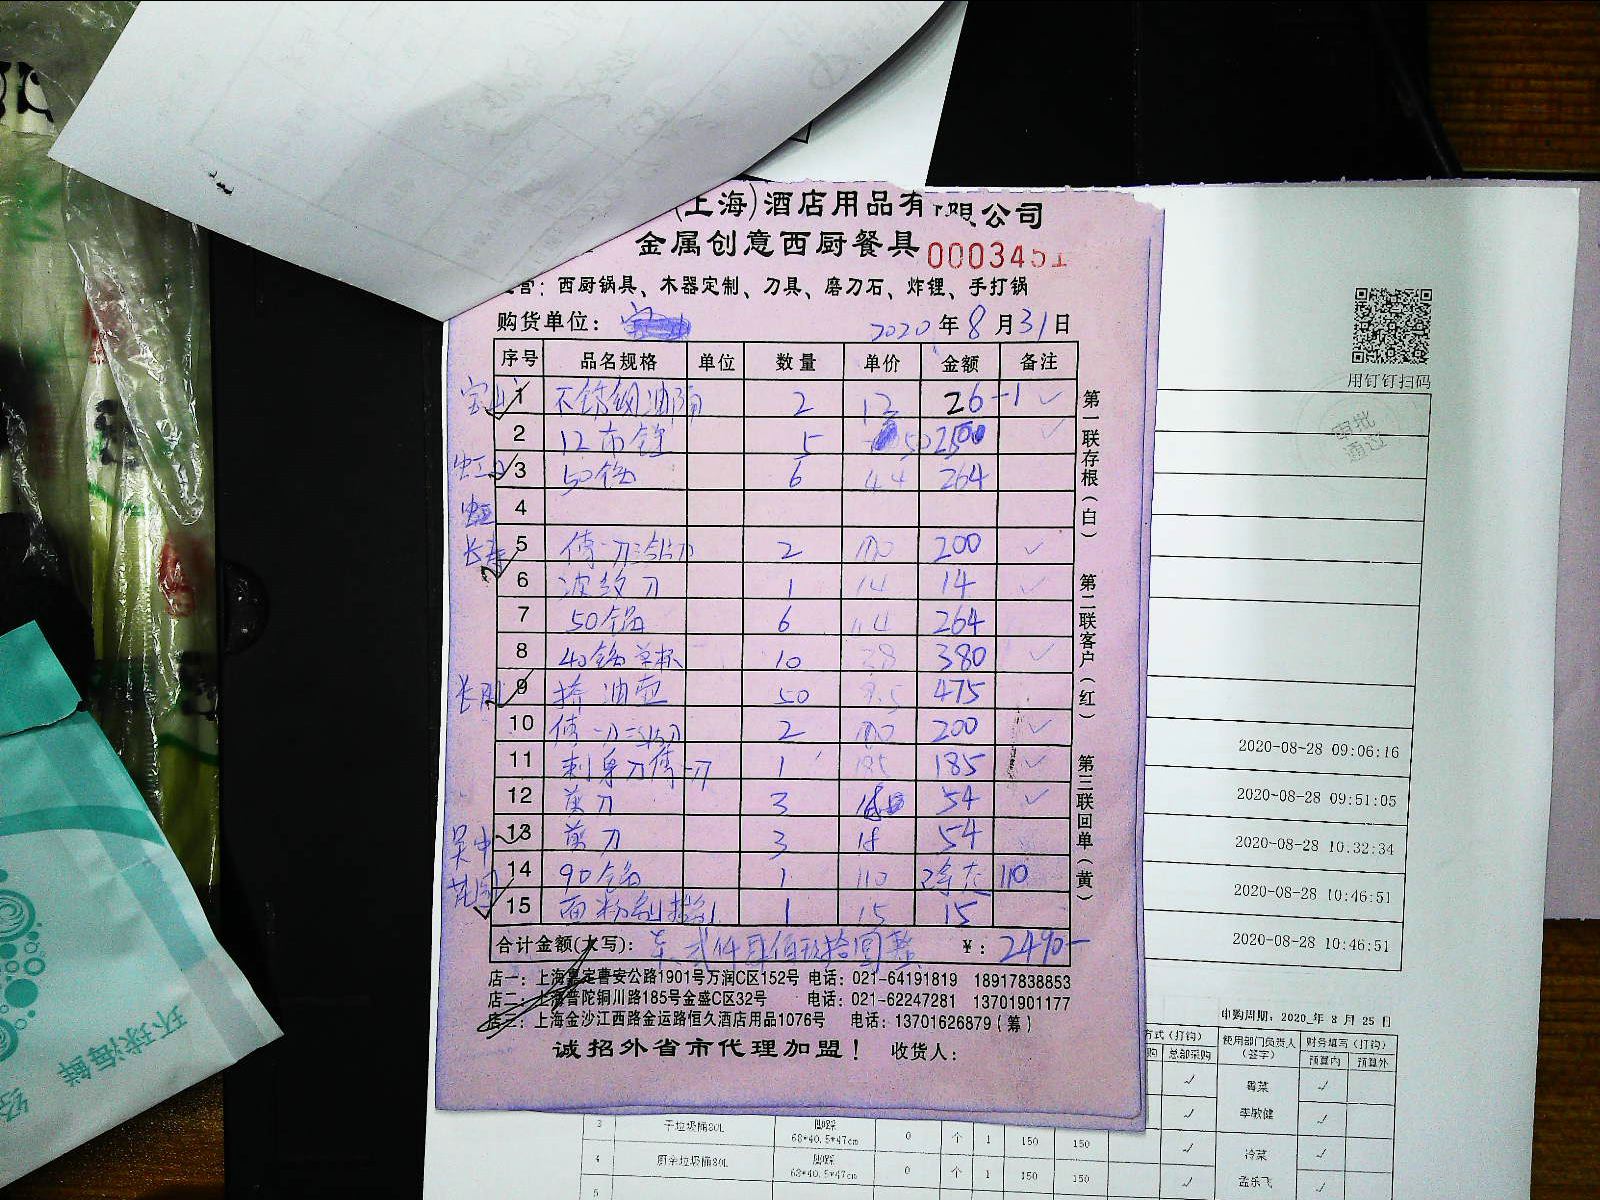 (上海)酒店用品有限公司
金属创意西厨餐具 0003451
营：西厨锅具、木器定制、刀具、磨刀石、炸锂、手打锅
购货单位：
2020年8月31日
序号 品名规格 单位 数量 单价 金额 备注
宝山 1 不锈钢油隔 2 12 26-1
2 12 5 50 250
虹口 3 50锅 6 44 264
4
长寿 5 2 100 200
6 波纹刀 1 14 14
7 50锅 6 44 264
8 40锅 10 38 380
9 挤油壶 50 9.5 475
10 2 100 200
11 刺身刀 1 185 185
12 剪刀 3 54
吴中 13 剪刀 3 18 54
花园 14 90锅 1 110 110
15 面粉刮 1 15 15
合计金额(大写)： 贰仟肆佰玖拾圆整 ￥：2490-
店一：上海嘉定曹安公路1901号万润C区152号 电话：021-64191819 18917838853
店二：上海普陀铜川路185号金盛C区32号 电话：021-62247281 13701901177
店三：上海金沙江西路金运路恒久酒店用品1076号 电话：13701626879(筹)
诚招外省市代理加盟！ 收货人：
第一联存根(白)
第二联客户(红)
第三联回单(黄)
用钉钉扫码
审批
通过
2020-08-28 09:06:16
2020-08-28 09:51:05
2020-08-28 10:32:34
2020-08-28 10:46:51
2020-08-28 10:46:51
申购周期：2020 年 8 月 25 日
方式(打钩) 使用部门负责人(签字) 财务填写(打钩)
购 总部采购 预算内 预算外
粤菜
李敏健
3 干垃圾桶80L 脚踩 68*40.5*47cm 0 个 1 150 150
冷菜
4 厨余垃圾桶80L 脚踩 68*40.5*47cm 0 个 1 150 150
孟乐飞
5
环球海鲜